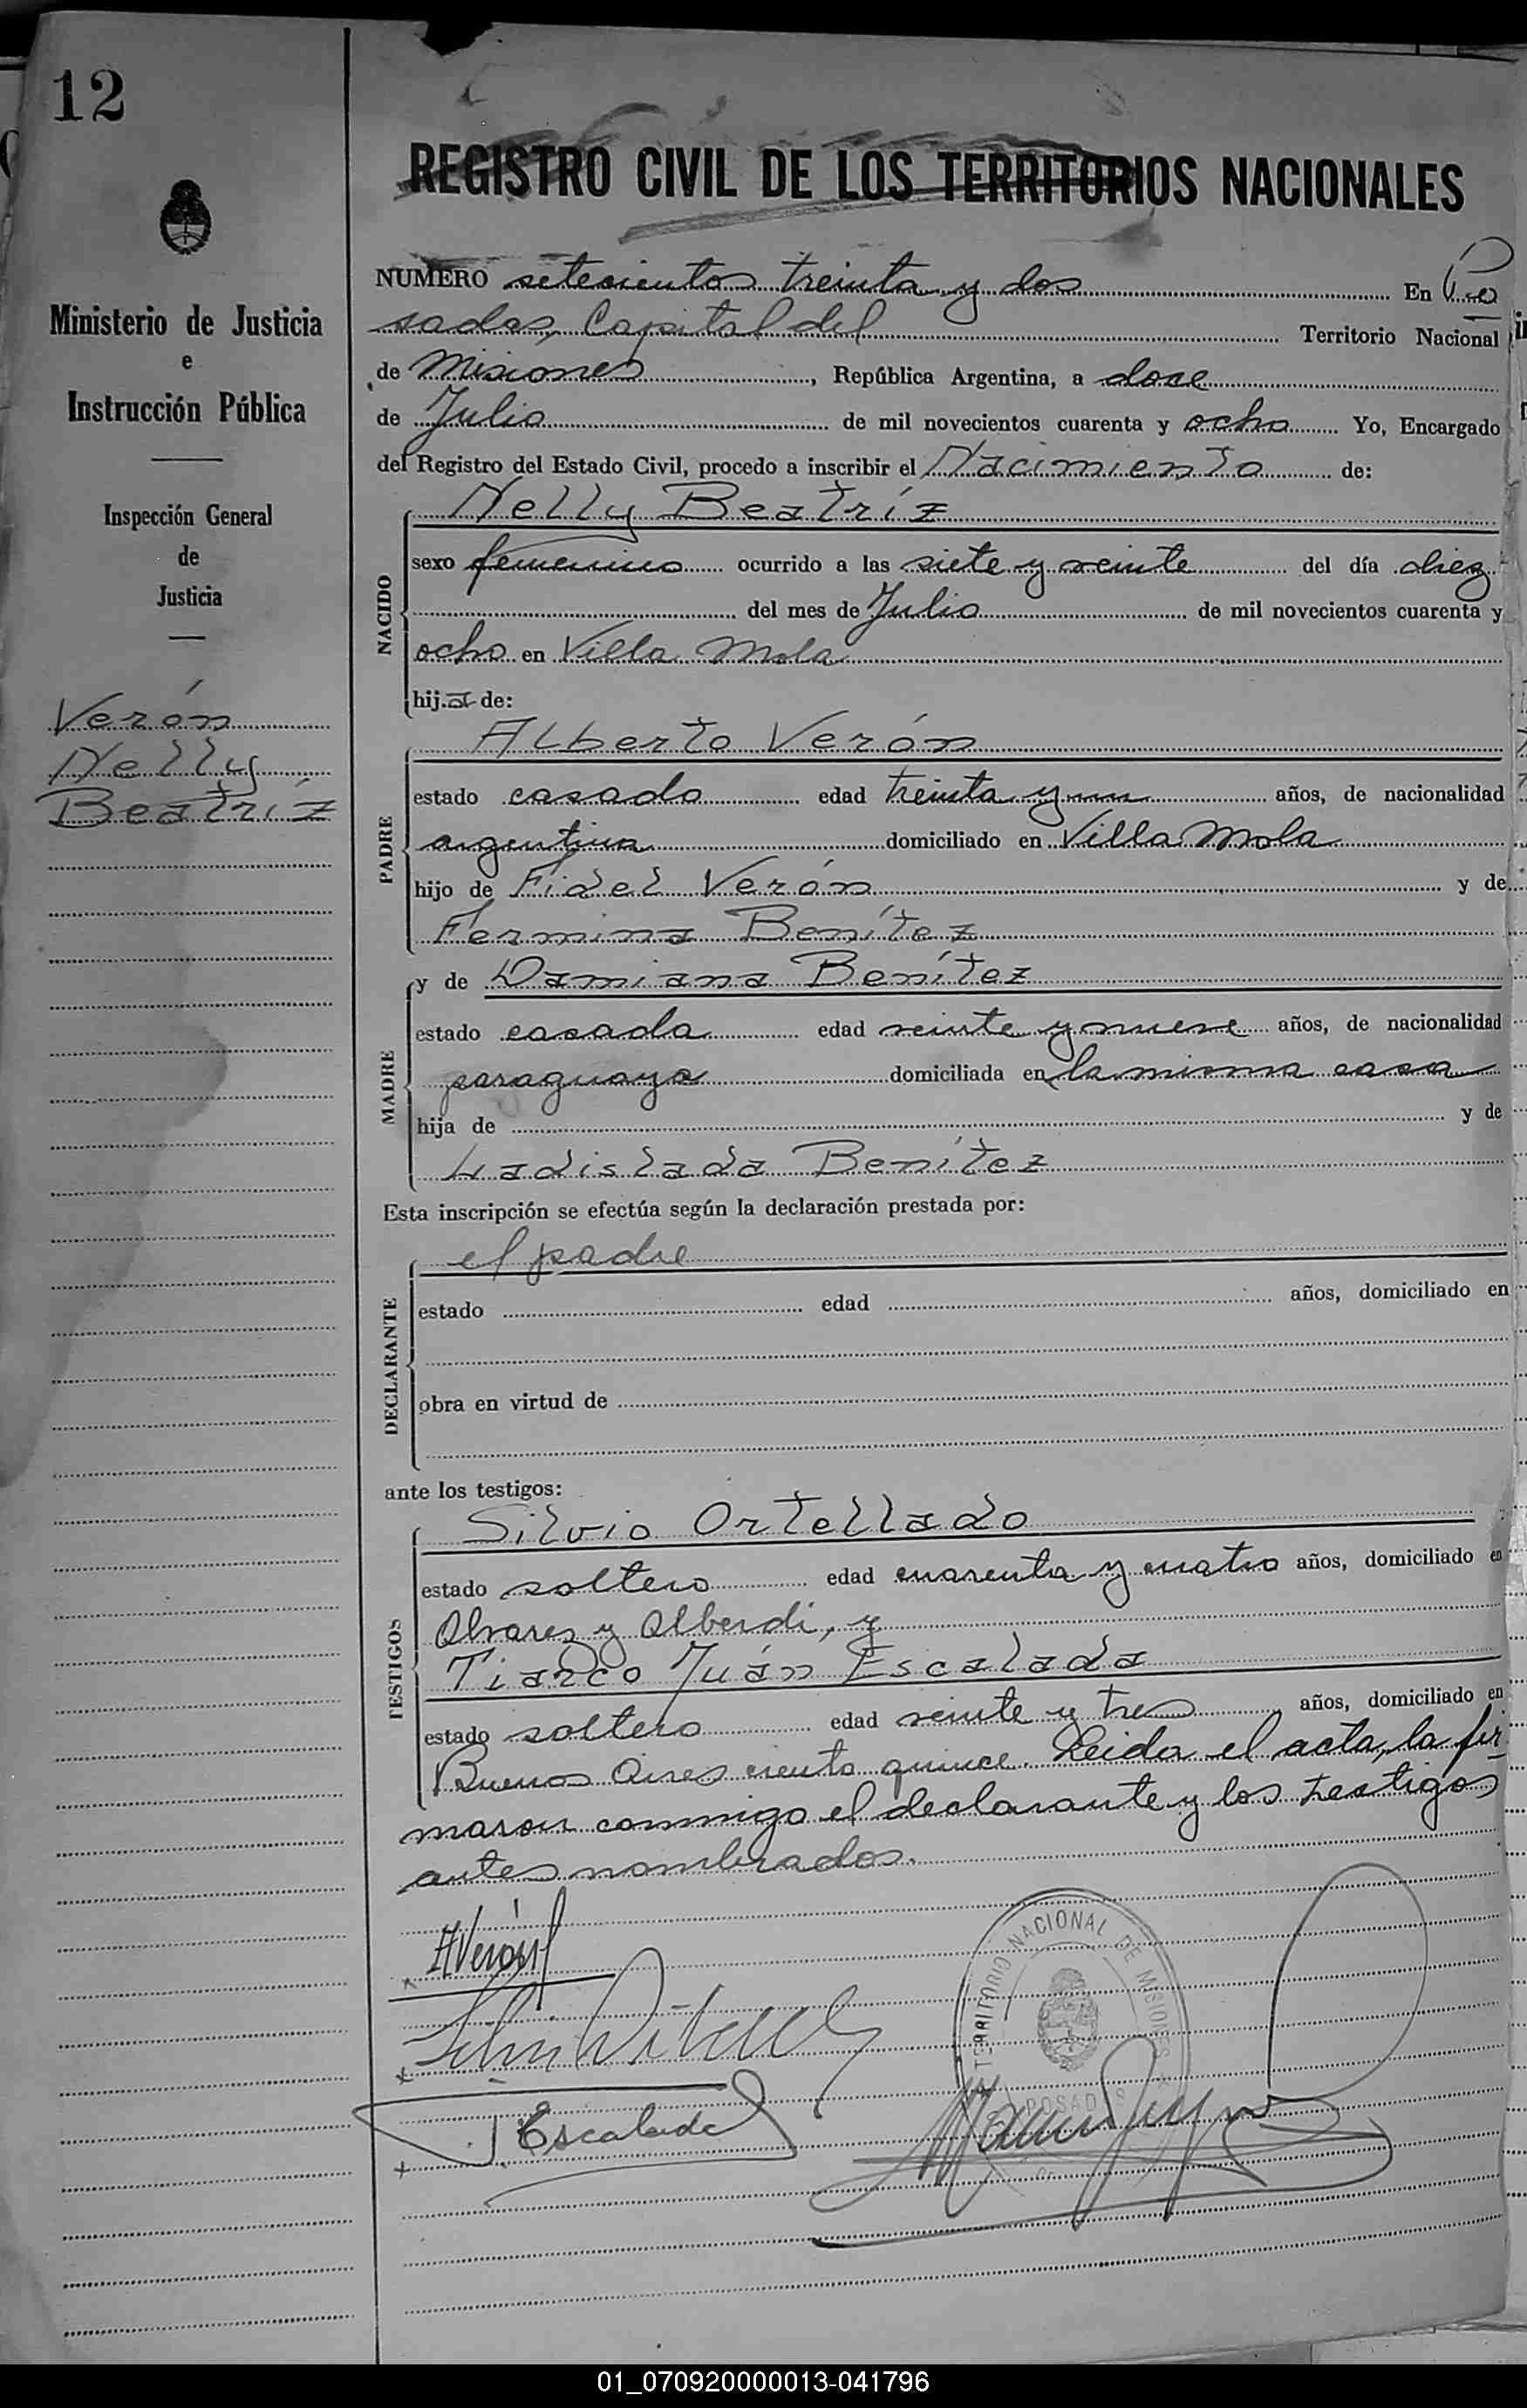 12
Ministerio de Justicia
e
Instrucción Pública
Inspección General
de
Justicia
Verón
Nelly
Beatríz
REGISTRO CIVIL DE LOS TERRITORIOS NACIONALES
NUMERO setecientos treinta y dos En Po
sadas, Capital del Territorio Nacional
de Misiones, República Argentina, a doce
de Julio de mil novecientos cuarenta y ocho Yo, Encargado
del Registro del Estado Civil, procedo a inscribir el Nacimiento de:
Nelly Beatríz
NACIDO
sexo femenino ocurrido a las siete y veinte del día diez
del mes de Julio de mil novecientos cuarenta y
ocho en Villa Mola
hija de:
Alberto Verón
PADRE
estado casado edad treinta y un años, de nacionalidad
argentina domiciliado en Villa Mola
hijo de Fidel Verón y de
Fermina Benítez
y de Damiana Benítez
MADRE
estado casada edad veinte y nueve años, de nacionalidad
paraguaya domiciliada en la misma casa
hija de y de
Ladislada Benítez
Esta inscripción se efectúa según la declaración prestada por:
el padre
DECLARANTE
estado edad años, domiciliado en
obra en virtud de
ante los testigos:
Silvio Ortellado
TESTIGOS
estado soltero edad cuarenta y cuatro años, domiciliado en
Alvarez y Alberdi, y
Tiarco Juán Escalada
estado soltero edad veinte y tres años, domiciliado en
Buenos Aires ciento quince. Leida el acta, la fir
maron conmigo el declarante y los testigos
antes nombrados.
AVerón
TERRITORIO NACIONAL DE MISIONES
POSADAS
J. Escalada
01_070920000013-041796